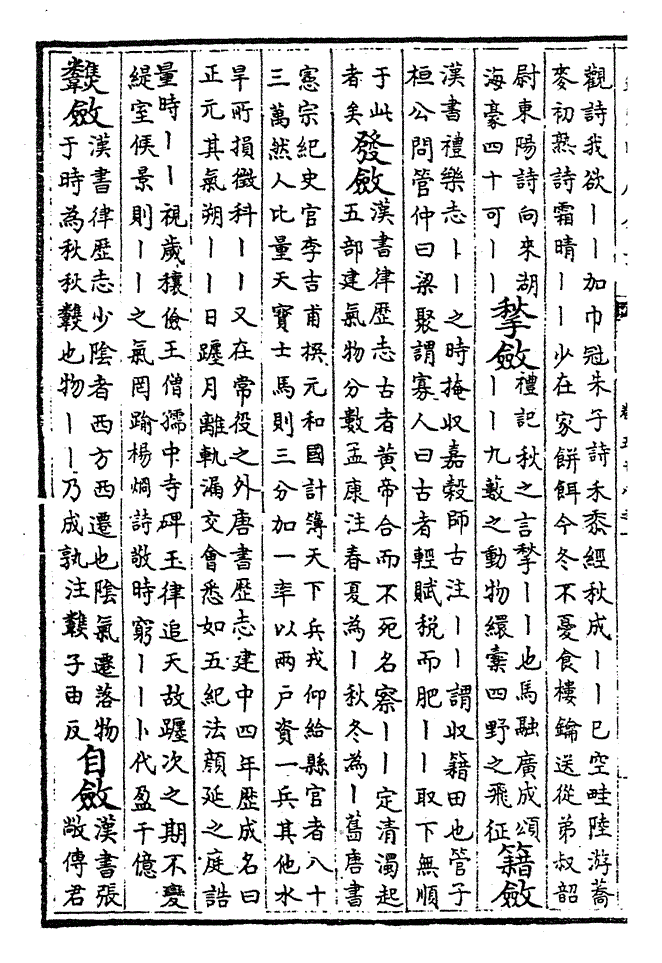 觀詩我欲丨丨加巾冠朱子詩禾黍經秋成丨丨已空畦陸游蕎
麥初熟詩霜晴丨丨少在家餅餌今冬不憂食樓鑰送從弟叔韶
尉東陽詩向來湖
海豪四十可丨丨
揫斂
禮記秋之言揫丨丨也馬融廣成頌
丨丨九藪之動物繯橐四野之飛征
籍斂
漢書禮樂志丨丨之時掩收嘉穀師古注丨丨謂收籍田也管子
桓公問管仲曰梁聚謂寡人曰古者輕賦税而肥丨丨取下無順
于此
者矣
發斂
漢書律歴志古者黄帝合而不死名察丨丨定清濁起
五部建氣物分數孟康注春夏為丨秋冬為丨舊唐書
憲宗紀史官李吉甫撰元和國計簿天下兵戎仰給縣官者八十
三萬然人比量天寳士馬則三分加一率以兩户資一兵其他水
旱所損徴科丨丨又在常役之外唐書歴志建中四年歴成名曰
正元其氣朔丨丨日躔月離軌漏交會悉如五紀法顔延之庭誥
量時丨丨視歲穰儉王僧孺中寺碑玉律追天故躔次之期不變
緹室候景則丨丨之氣罔踰楊烱詩敬時窮丨丨卜代盈千億
𩏑斂
漢書律歴志少陰者西方西遷也陰氣遷落物
于時為秋秋𩏑也物丨丨乃成孰注𩏑子由反
自斂
漢書張
敞傳君